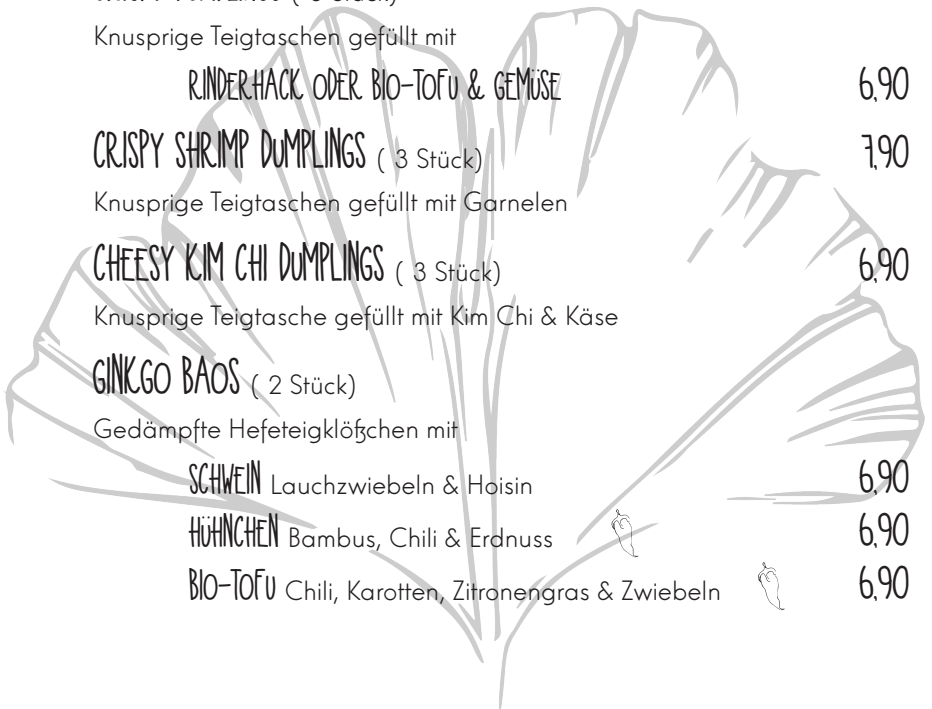 Knusprige Teigtaschen gefüllt mit
RINDERHACK ODER BIO-TOFU & GEMÜSE 6,90
CRISPY SHRIMP DUMPLINGS ( 3 Stück) 7,90
Knusprige Teigtaschen gefüllt mit Garnelen
CHEESY KIM CHI DUMPLINGS ( 3 Stück) 6,90
Knusprige Teigtasche gefüllt mit Kim Chi & Käse
GINKGO BAOS ( 2 Stück)
Gedämpfte Hefeteigklößchen mit
SCHWEIN Lauchzwiebeln & Hoisin 6,90
HÜHNCHEN Bambus, Chili & Erdnuss 6,90
BIO-TOFU Chili, Karotten, Zitronengras & Zwiebeln 6,90